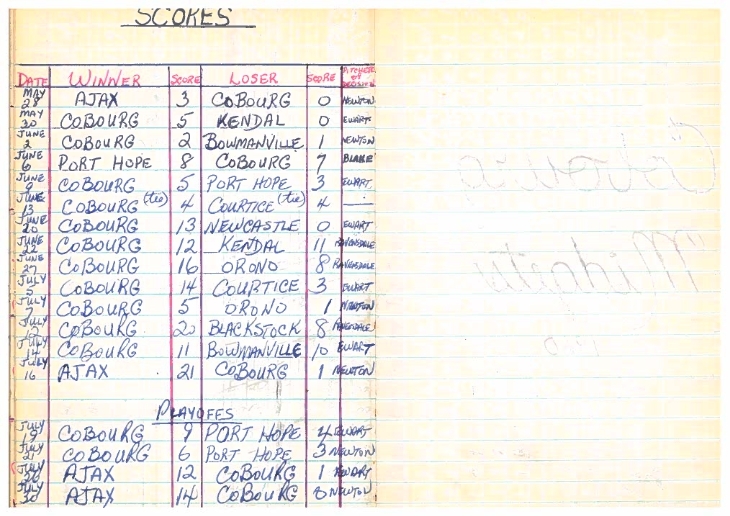 SCORES
DATE WINNER SCORE LOSER SCORE PITCHER OF DECISION
MAY 28 AJAX 3 COBOURG 0 NEWTON
MAY 30 COBOURG 5 KENDAL 0 EWART
JUNE 2 COBOURG 2 BOWMANVILLE 1 NEWTON
JUNE 6 PORT HOPE 8 COBOURG 7 BLAKE
JUNE COBOURG 5 PORT HOPE 3 EWART
JUNE 13 COBOURG (tie) 4 COURTICE (tie) 4 —
JUNE 20 COBOURG 13 NEWCASTLE 0 EWART
JUNE 22 COBOURG 12 KENDAL 11 RAVENSDALE
JUNE 27 COBOURG 16 ORONO 8 RAVENSDALE
JULY 5 COBOURG 14 COURTICE 3 EWART
JULY 7 COBOURG 5 ORONO 1 NEWTON
JULY COBOURG 20 BLACKSTOCK 8 RAVENSDALE
JULY 14 COBOURG 11 BOWMANVILLE 10 EWART
JULY 16 AJAX 21 COBOURG 1 NEWTON
PLAYOFFS
JULY 19 COBOURG 9 PORT HOPE 4 EWART
JULY 21 COBOURG 6 PORT HOPE 3 NEWTON
JULY 26 AJAX 12 COBOURG 1 EWART
JULY 30 AJAX 14 COBOURG 8 NEWTON
Cobourg
Midgets